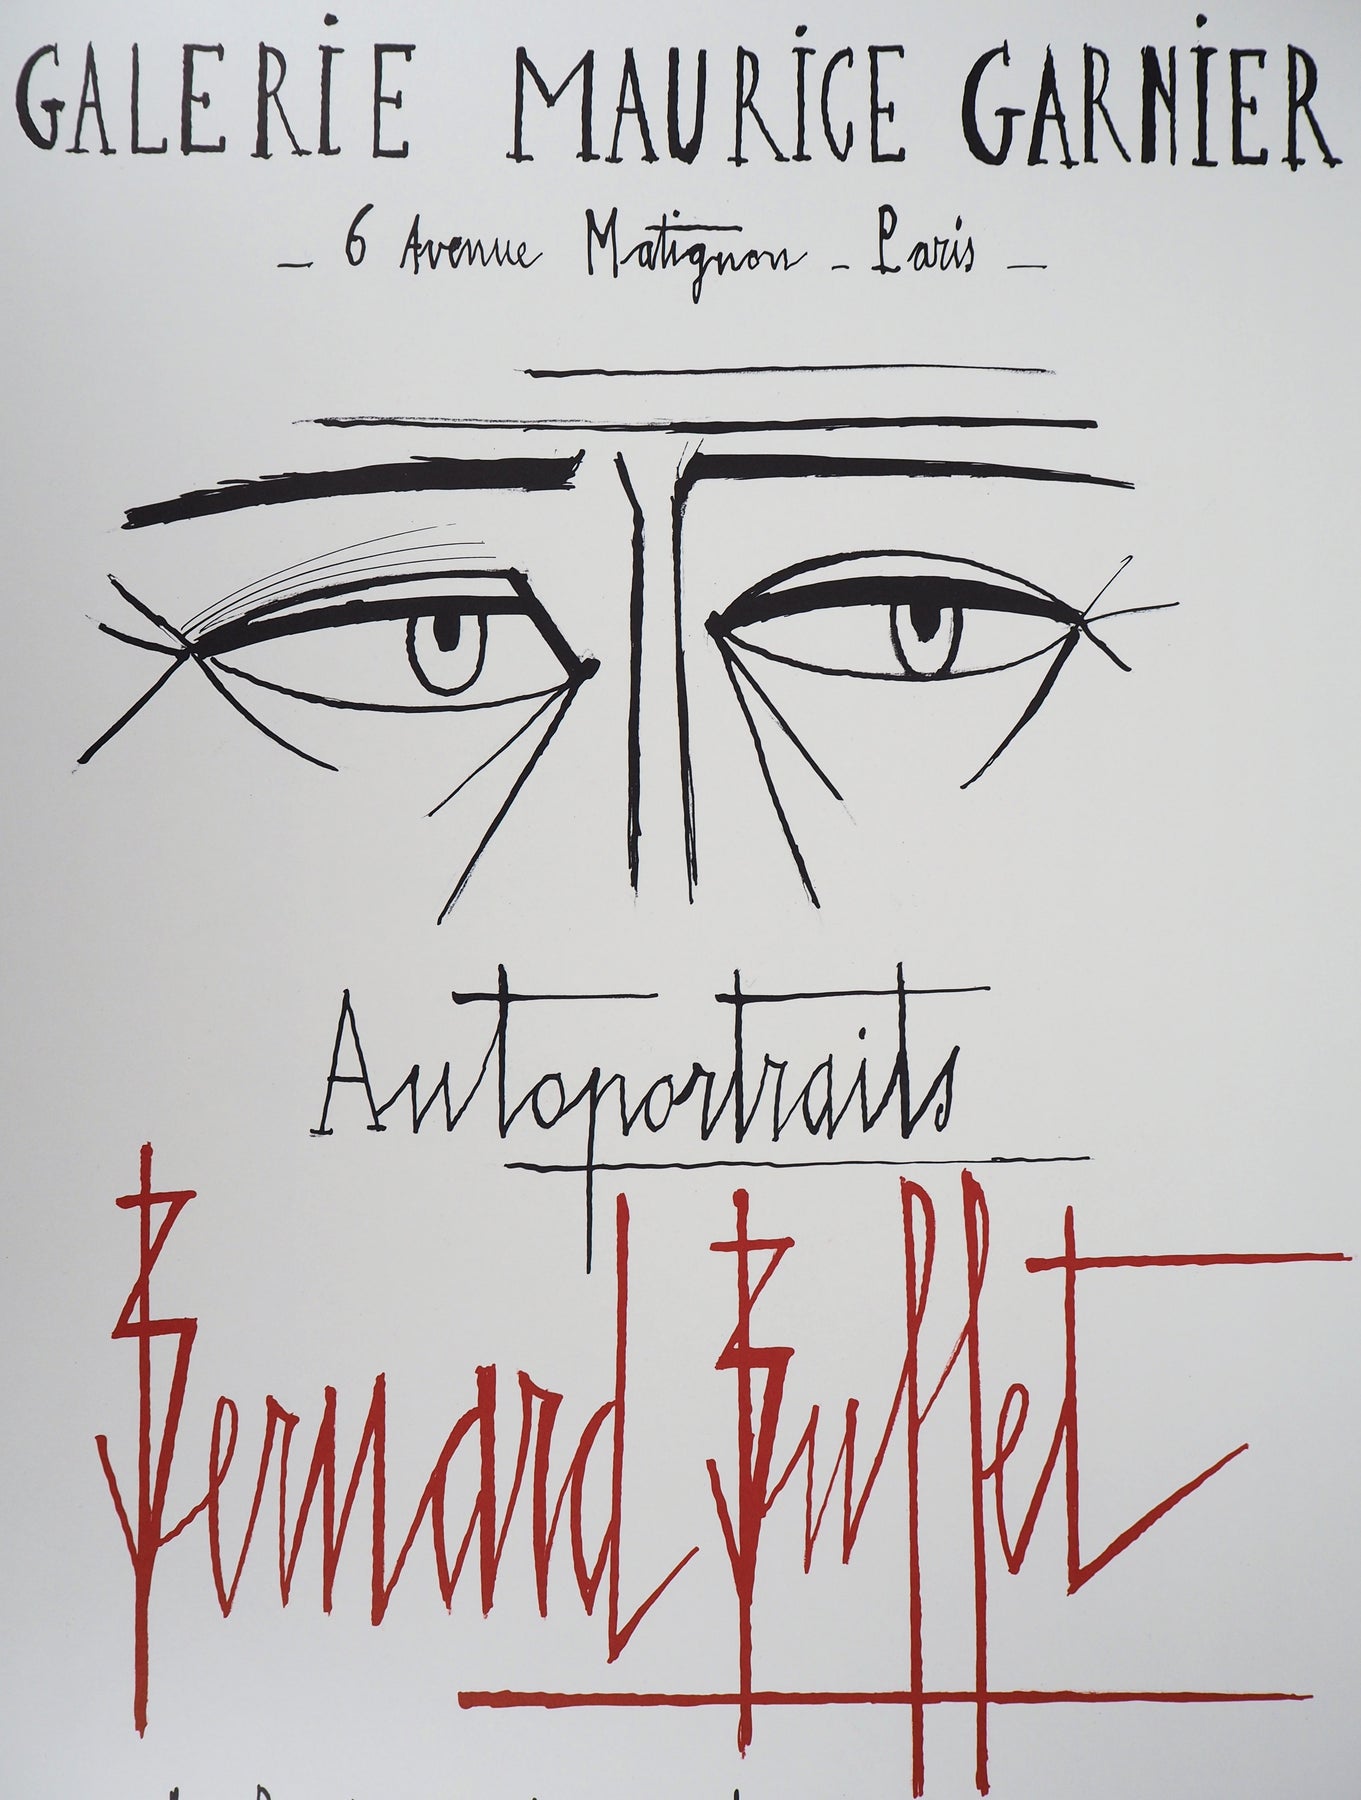 GALERIE MAURICE GARNIER
_ 6 Avenue Matignon _ Paris _
Autoportraits
Bernard Buffet